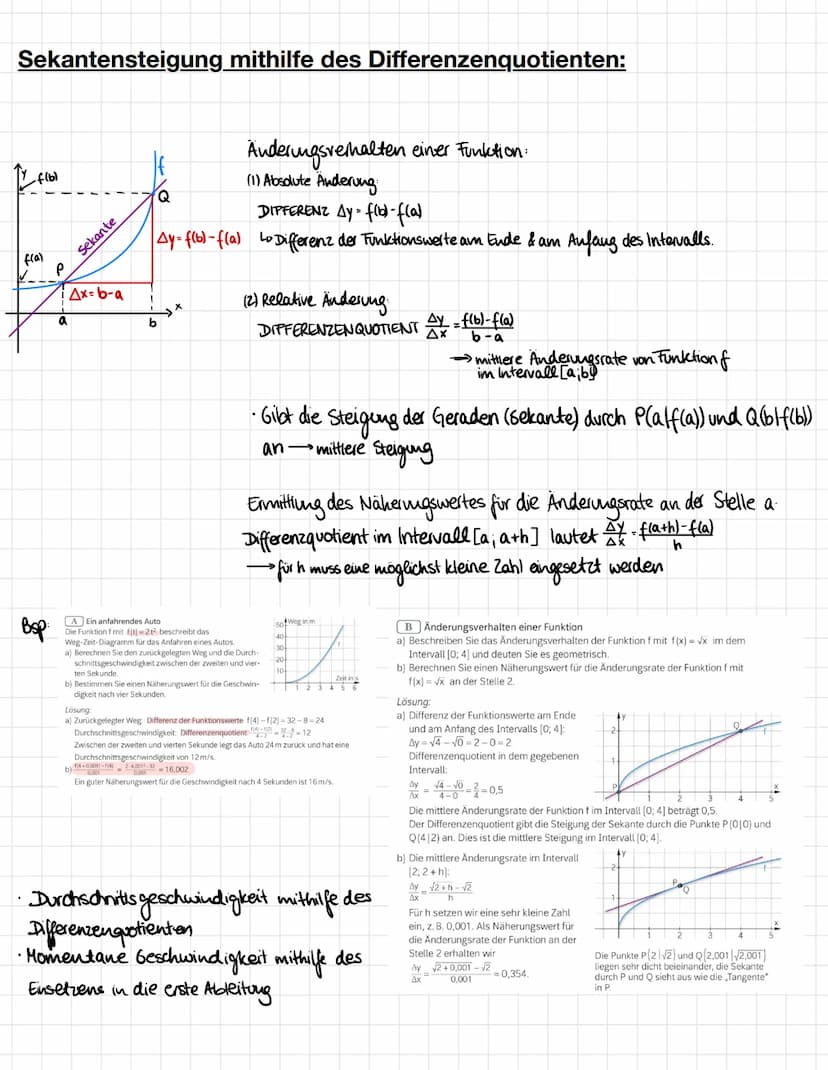 Sekantensteigung mithilfe des Differenzenquotienten:
Änderungsverhalten einer Funktion:
(1) Absolute Änderung:
DIFFERENZ Δy = f(b)-f(a)
↳ Differenz der Funktionswerte am Ende & am Anfang des Intervalls.
y
f(b)
f
Q
Sekante
Δy = f(b)-f(a)
f(a)
P
Δx = b-a
x
a
b
(2) Relative Änderung:
DIFFERENZENQUOTIENT Δy/Δx = f(b)-f(a)/b-a
→ mittlere Änderungsrate von Funktion f
im Intervall [a;b]
· Gibt die Steigung der Geraden (Sekante) durch P(a|f(a)) und Q(b|f(b))
an → mittlere Steigung
Ermittlung des Näherungswertes für die Änderungsrate an der Stelle a.
Differenzquotient im Intervall [a; a+h] lautet Δy/Δx = f(a+h)-f(a)/h
→ für h muss eine möglichst kleine Zahl eingesetzt werden
Bsp:
A Ein anfahrendes Auto
Die Funktion f mit f(t) = 2t² beschreibt das
Weg-Zeit-Diagramm für das Anfahren eines Autos.
a) Berechnen Sie den zurückgelegten Weg und die Durch-
schnittsgeschwindigkeit zwischen der zweiten und vier-
ten Sekunde.
b) Bestimmen Sie einen Näherungswert für die Geschwin-
digkeit nach vier Sekunden.
50 Weg in m
40
30
20
10
f
Zeit in s
1 2 3 4 5 6
Lösung:
a) Zurückgelegter Weg: Differenz der Funktionswerte f(4) – f(2) = 32 – 8 = 24
Durchschnittsgeschwindigkeit: Differenzenquotient f(4) – f(2)/4 – 2 = 32 – 8/4 – 2 = 12
Zwischen der zweiten und vierten Sekunde legt das Auto 24 m zurück und hat eine
Durchschnittsgeschwindigkeit von 12 m/s.
b) f(4 + 0,001) – f(4)/0,001 = 2 · 4,001² – 32/0,001 = 16,002
Ein guter Näherungswert für die Geschwindigkeit nach 4 Sekunden ist 16 m/s.
B Änderungsverhalten einer Funktion
a) Beschreiben Sie das Änderungsverhalten der Funktion f mit f(x) = √x im dem
Intervall [0; 4] und deuten Sie es geometrisch.
b) Berechnen Sie einen Näherungswert für die Änderungsrate der Funktion f mit
f(x) = √x an der Stelle 2.
Lösung:
a) Differenz der Funktionswerte am Ende
und am Anfang des Intervalls [0; 4]:
Δy = √4 – √0 = 2 – 0 = 2
Differenzenquotient in dem gegebenen
Intervall:
Δy/Δx = √4 – √0/4 – 0 = 2/4 = 0,5
y
2
1
Q
f
P
x
1 2 3 4 5
Die mittlere Änderungsrate der Funktion f im Intervall [0; 4] beträgt 0,5.
Der Differenzenquotient gibt die Steigung der Sekante durch die Punkte P(0|0) und
Q(4|2) an. Dies ist die mittlere Steigung im Intervall [0; 4].
b) Die mittlere Änderungsrate im Intervall
[2; 2 + h]:
Δy/Δx = √2 + h – √2/h
Für h setzen wir eine sehr kleine Zahl
ein, z. B. 0,001. Als Näherungswert für
die Änderungsrate der Funktion an der
Stelle 2 erhalten wir
Δy/Δx = √2 + 0,001 – √2/0,001 ≈ 0,354.
y
2
1
P
Q
f
x
1 2 3 4 5
Die Punkte P(2|√2) und Q(2,001|√2,001)
liegen sehr dicht beieinander, die Sekante
durch P und Q sieht aus wie die „Tangente"
in P.
· Durchschnittsgeschwindigkeit mithilfe des
Differenzenquotienten
· Momentane Geschwindigkeit mithilfe des
Einsetzens in die erste Ableitung